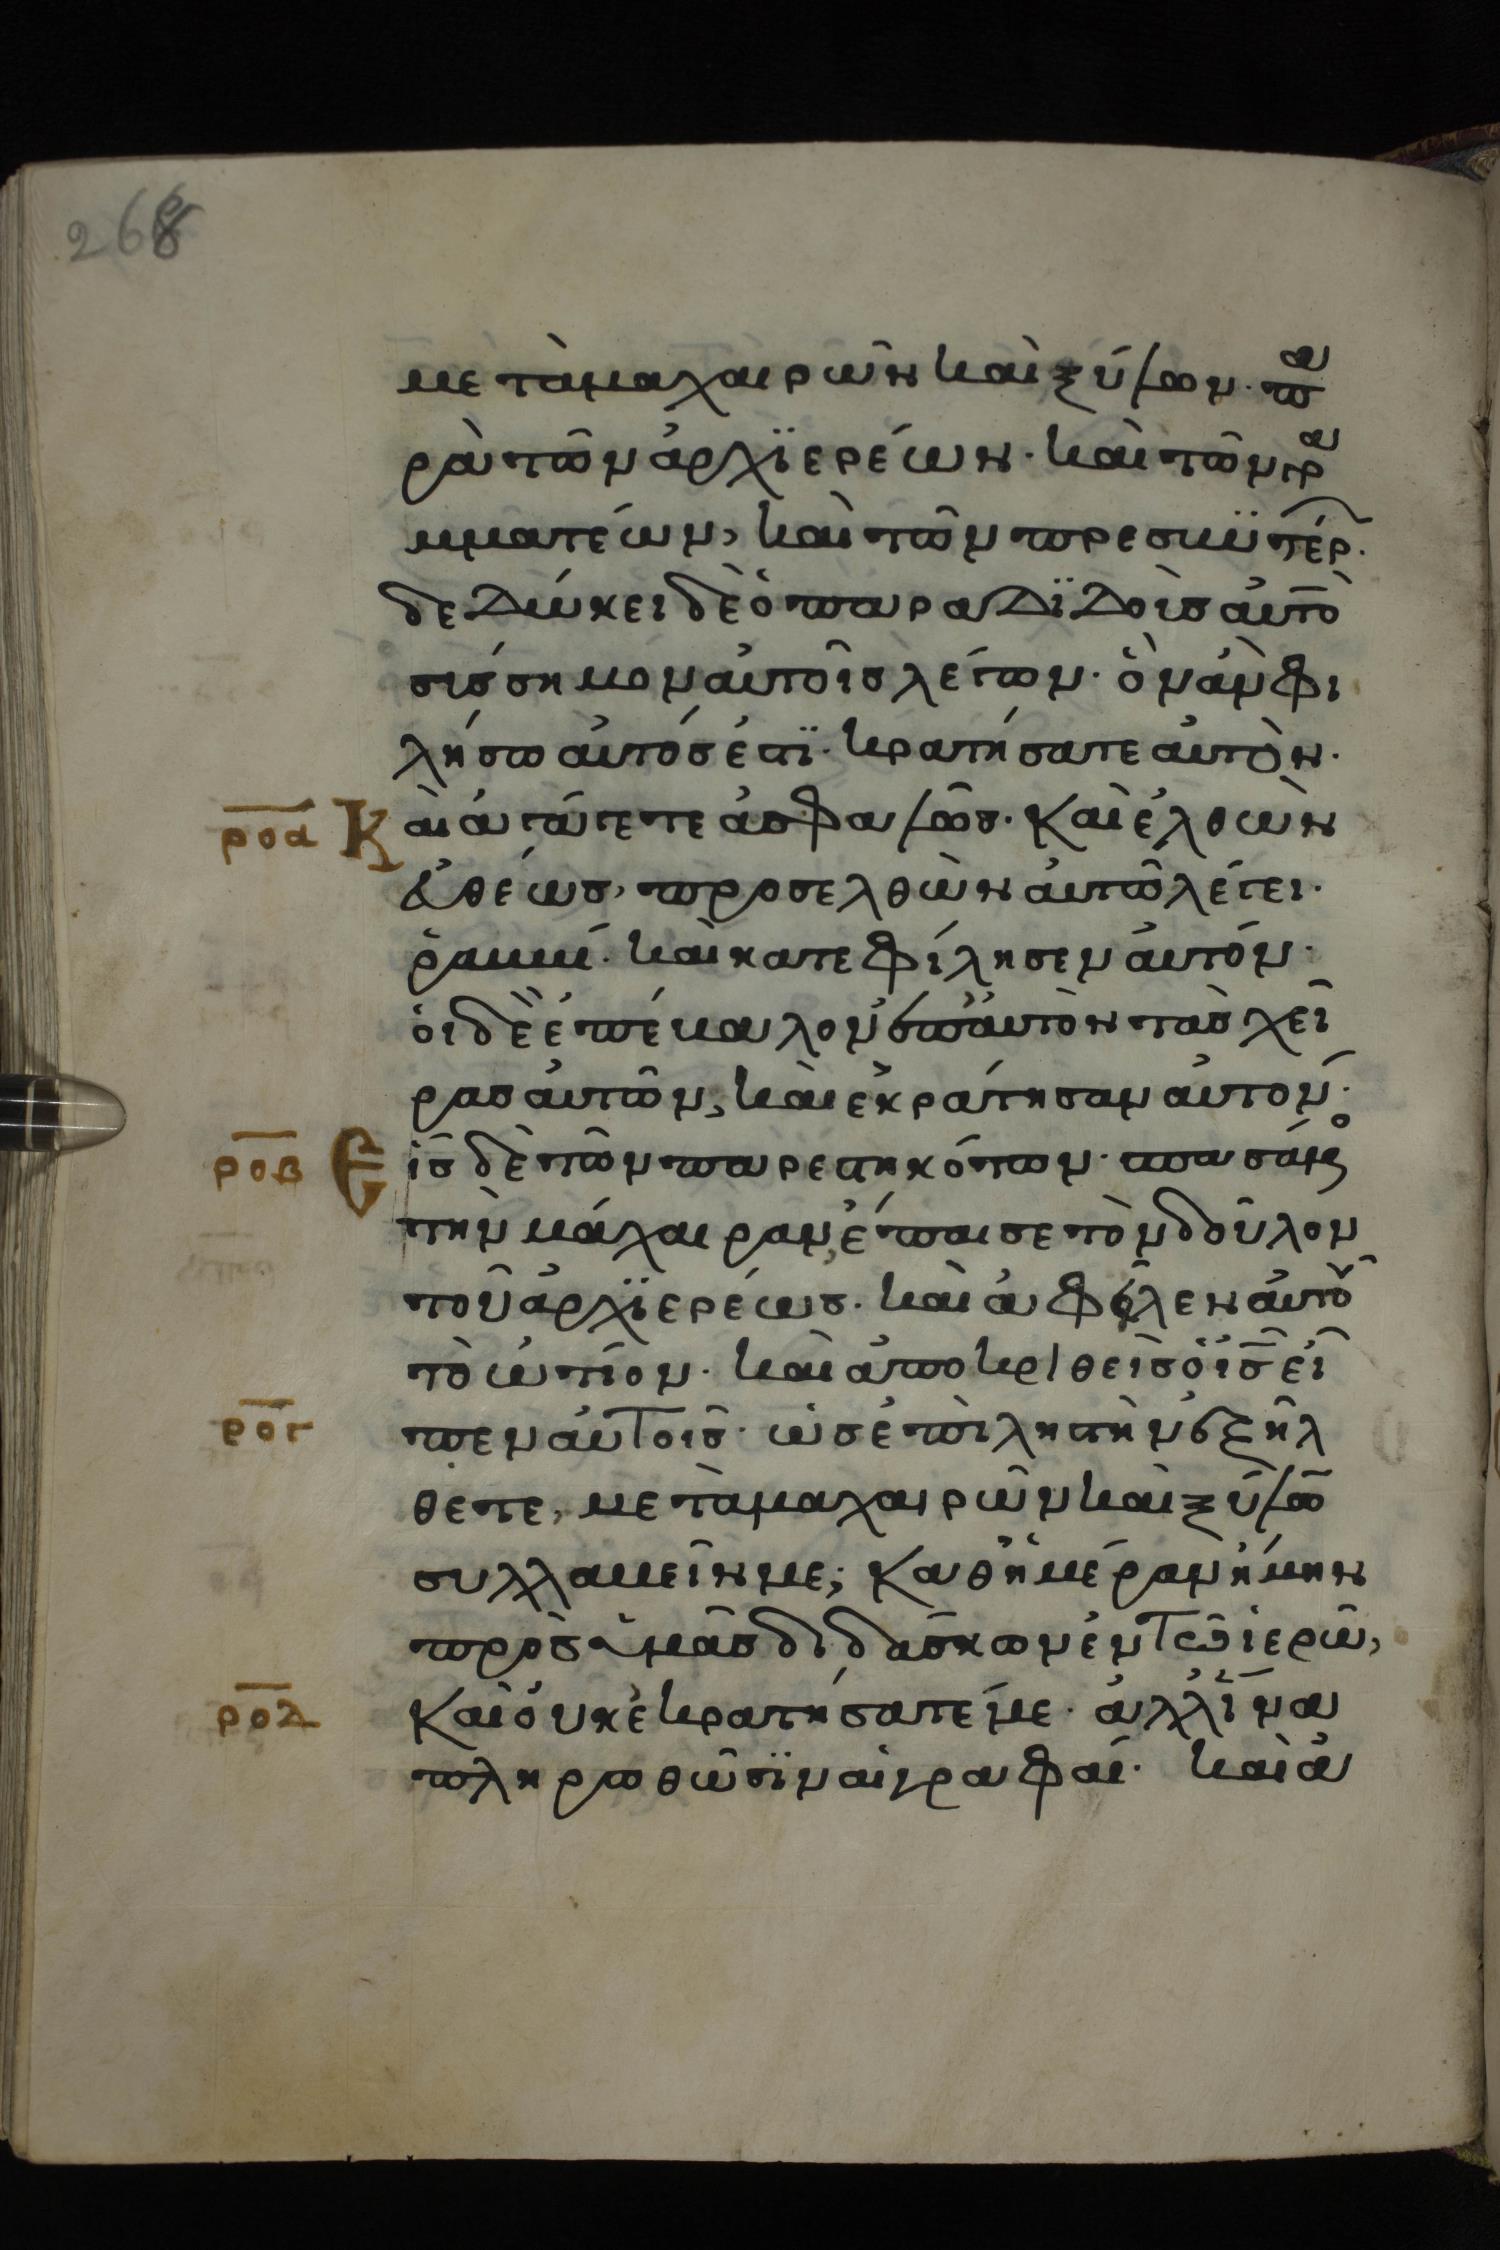 268
μετὰ μαχαιρῶν καὶ ξύλων· πα
ρὰ τῶν ἀρχϊερέων· καὶ τῶν γρα
μματέων, καὶ τῶν πρεσβϋτέρ·
δεδώκει δὲ ὁ παραδϊδοὺσ αὐτὸ
σύσσημον αὐτοῖσ λέγων· ὃν ἂν φι
λήσω αὐτόσ ἐστϊ· κρατήσατε αὐτὸν·
ροα Καὶ ἀπάγετε ἀσφαλῶσ· καὶ ἐλθὼν
εὐθέωσ, προσελθὼν αὐτῶ λέγει·
ῥαββί· καὶ κατεφίλησεν αὐτόν·
οἱ δὲ ἐπέβαλον ἐπ' αὐτὸν τὰσ χεῖ
ρασ αὐτῶν, καὶ ἐκράτησαν αὐτον·
ροβ Εἷσ δὲ τῶν παρεστηκότων· σπασάμενο
τὴν μάχαιραν, ἔπαισε τὸν δοῦλον
τοῦ ἀρχϊερέωσ· καὶ ἀφεῖλεν αὐτοῦ
τὸ ὠτίον· καὶ ἀποκριθεὶσ ὁ ἰσ εἶ
ρογ πεν αὐτοισ· ὡσ ἐπὶ ληστὴν ἐξῆλ
θετε, μετὰ μαχαιρῶν καὶ ξύλω
συλλαβεῖν με; καθ' ἡμέραν ἤμην
πρὸσ ὑμᾶσ διδάσκων ἐν τῶ ἱερῶ,
ροδ καὶ οὐκ ἐκρατήσατέ με· ἀλλ' ἵνα
πληρωθῶσϊν αἱ γραφαί· καὶ ἀ